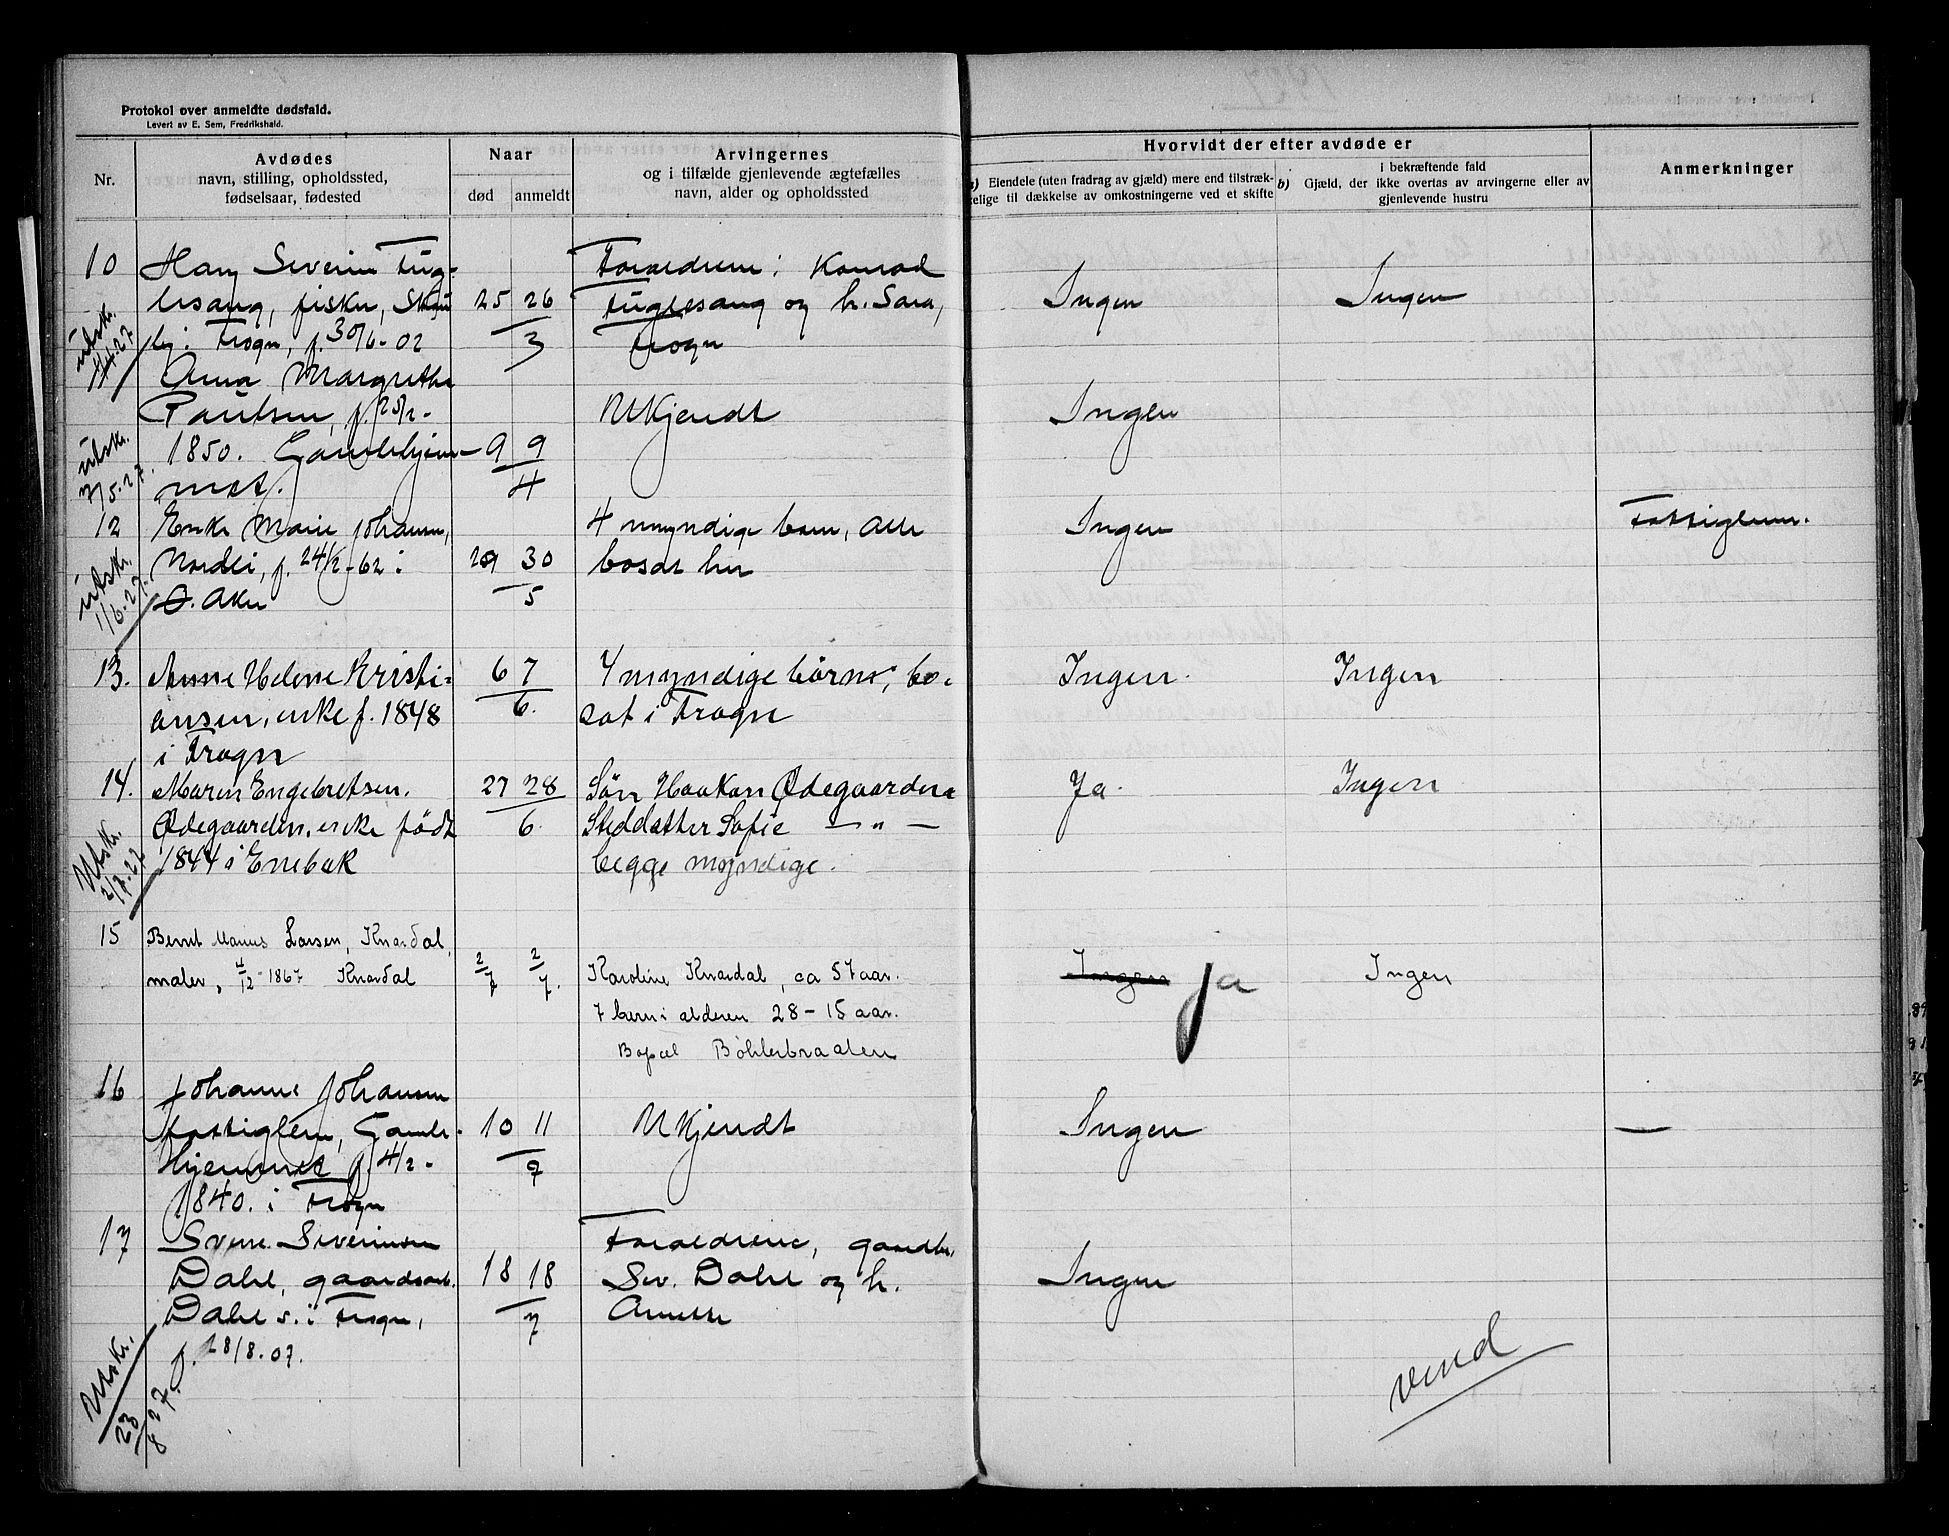 Protokol over anmeldte dødsfald.
Levert av E. Sem, Fredrikshald.
Nr.
Avdødes
navn, stilling, opholdssted,
fødselsaar, fødested
Naar
død
anmeldt
Arvingernes
og i tilfælde gjenlevende ægtefælles
navn, alder og opholdssted
Hvorvidt der efter avdøde er
a) Eiendele (uten fradrag av gjæld) mere end tilstræk-
kelige til dækkelse av omkostningerne ved et skifte
i bekræftende fald
b) Gjæld, der ikke overtas av arvingerne eller av
gjenlevende hustru
Anmerkninger
10
Hans Severin Fug-
lesang, fisker,
i Frogn, f. 30/6-02
25 26
3
Foraeldrene: Konrad
Fuglesang og h. Sara,
Frogn
Ingen
Ingen
utskr.
27
Anna Margrethe
Paulsen, f. 25/2-
1850. Gamlehjem-
met.
9 9
4
Ukjendt
Ingen
utskr.
7/5.27.
12
Enke Marie Johansen,
Nordli, f. 24/2-62 i
Ø. Aker
29 30
5
4 myndige barn, alle
bosat her
Ingen
Fattiglem.
utskr.
1/6.27.
13.
Anne Helene Kristi-
ansen, enke f. 1848
i Frogn
6 7
6.
4 myndige børn, bo-
sat i Frogn
Ingen.
Ingen
14.
Maren Engebretsen.
Ødegaarden, enke født
1844 i Enebak
27 28
6.
Søn Haakon Ødegaarden
Steddatter Sofie — " —
begge myndige.
Ja.
Ingen
Utskr.
2/7.27
15
Bernt Marius Larsen, Knardal,
maler, 4/12-1867 Knardal
2/7 2/7.
Karoline Knardal, ca 57 aar.
7 barn i alderen 28-15 aar.
Bopæl Bøhlerbraaten
Ingen ja
Ingen
16
Johanne Johansen
fattiglem, Gamle-
hjemmet f. 4/2-
1840. i Frogn
10 11
7
Ukjendt
Ingen
—
17
Sverre Severinsen
Dahl, gaardsarb.
Dahl s. i Frogn,
f. 28/8.07.
18 18
7
Foraeldrene, gaardbr.
Sev. Dahl og h.
Anette
Ingen
Utskr.
23/8 27.
vend